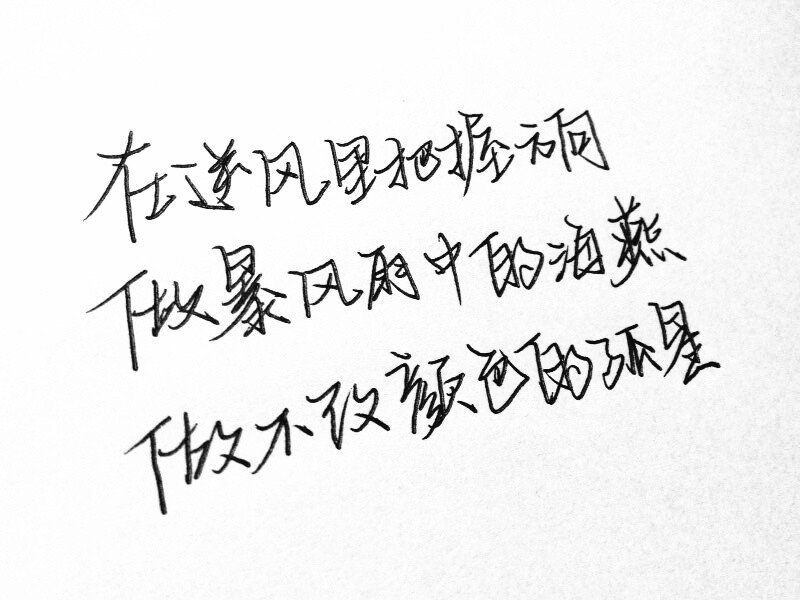 在逆风里把握方向
做暴风雨中的海燕
做不改颜色的孤星